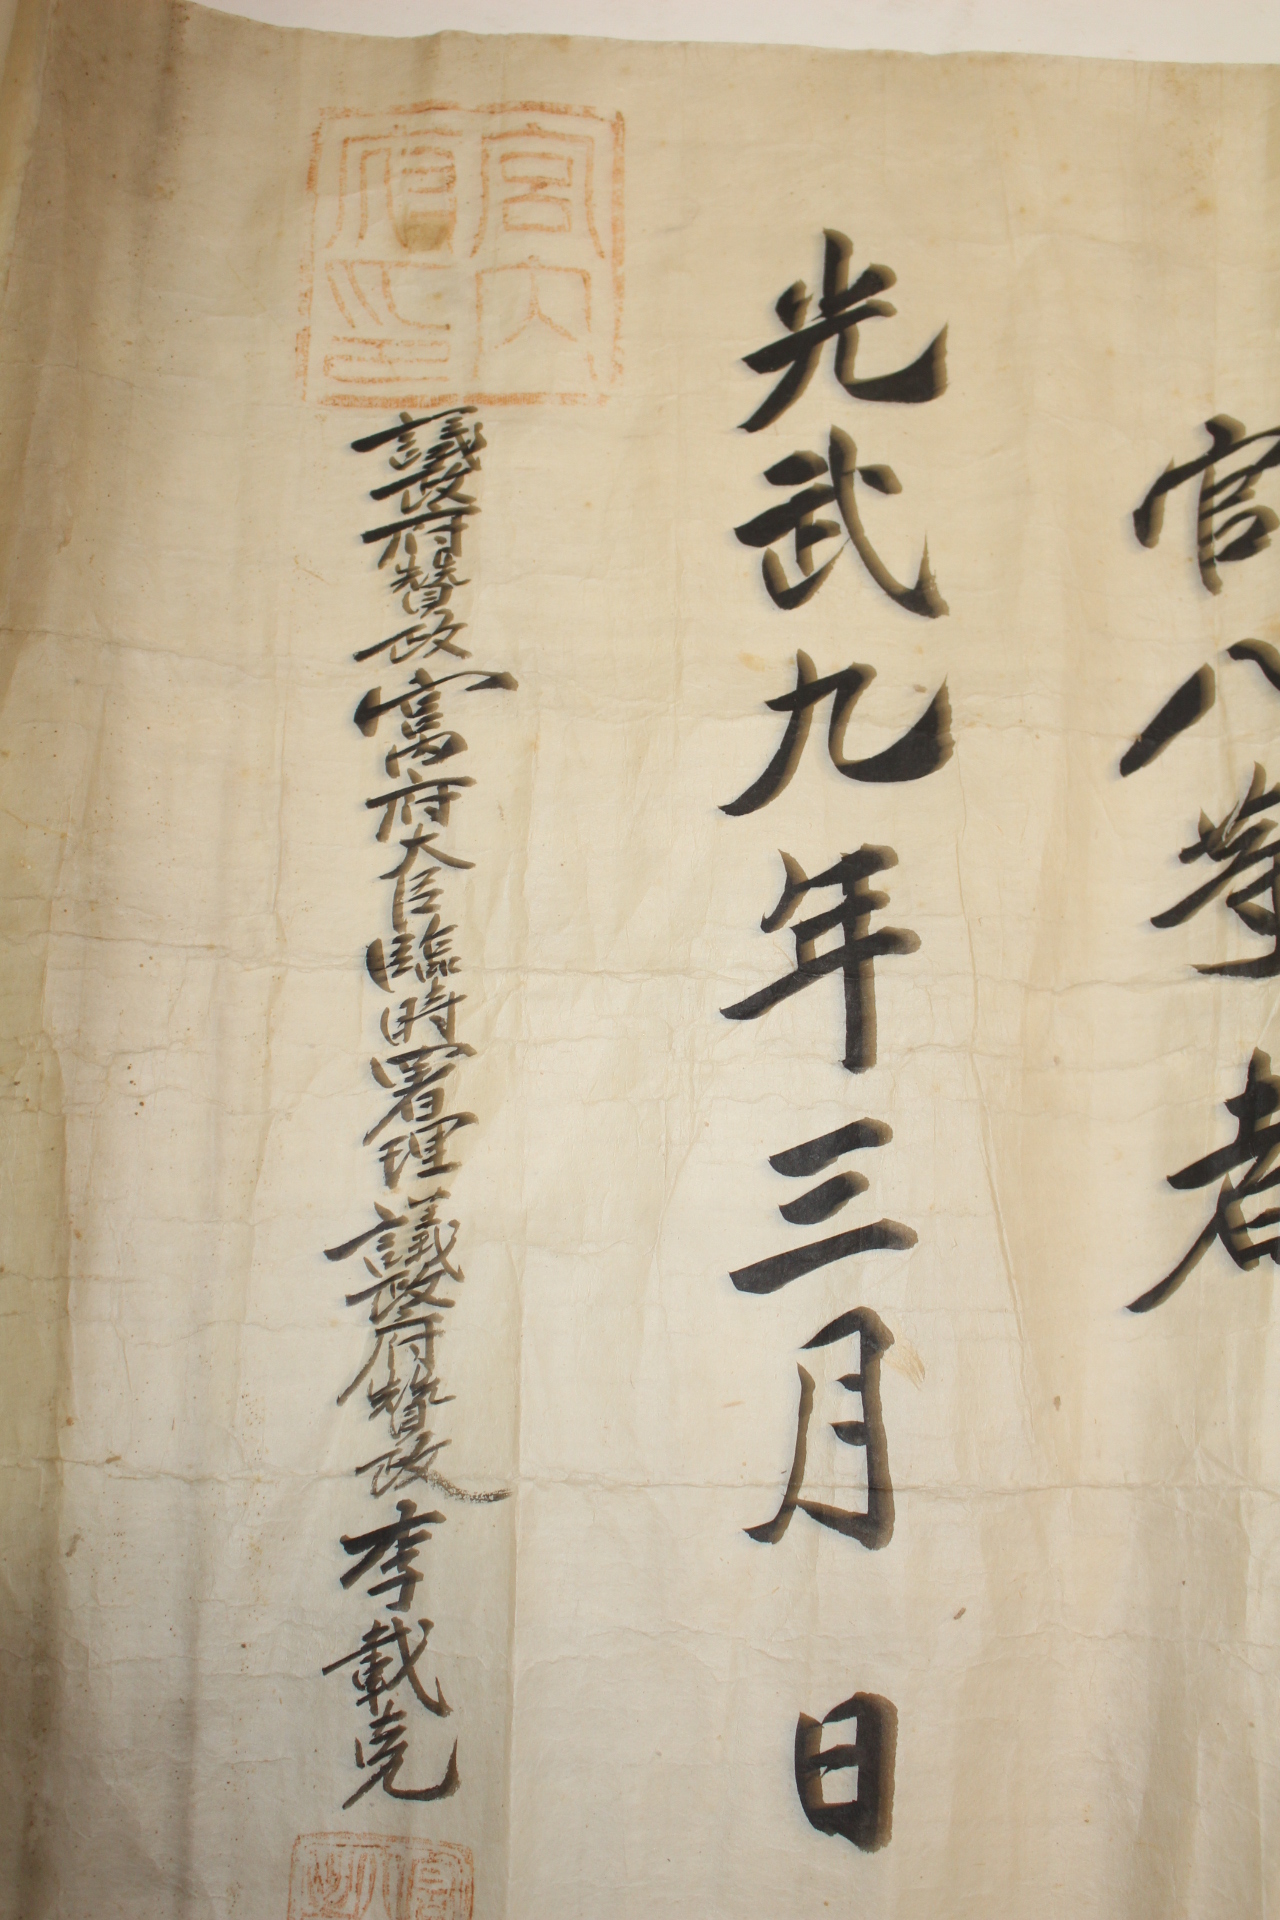 官八等者
光武九年三月 日
議政府贊政宮內府大臣臨時署理議政府贊政李載克
宮內府印